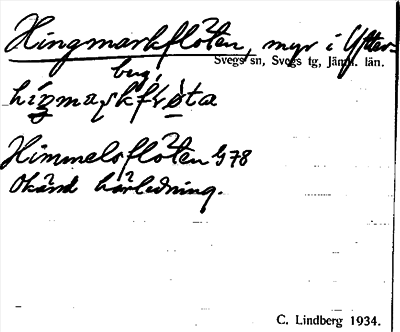 Hingmarkflöten, myr i Ytter-
byg,
Svegs sn, Svegs tg, Jämtl. län.
Himmelsflöten G78
Okänd härledning.
C. Lindberg 1934.